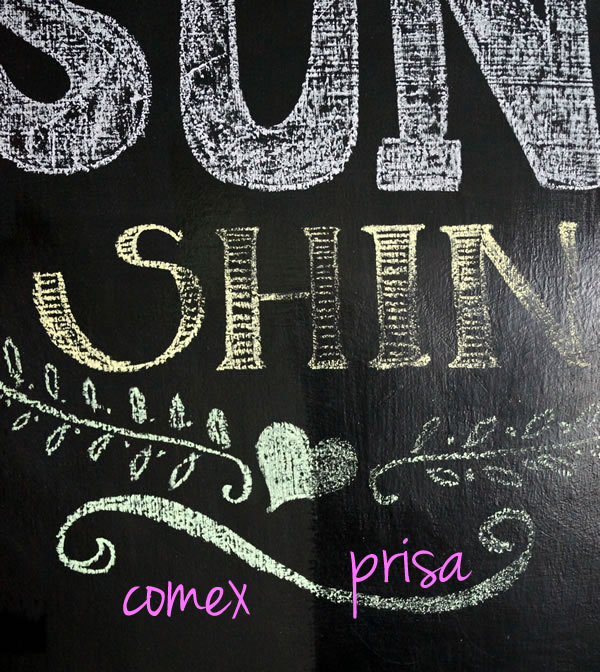 SUN
SHIN
comex prisa